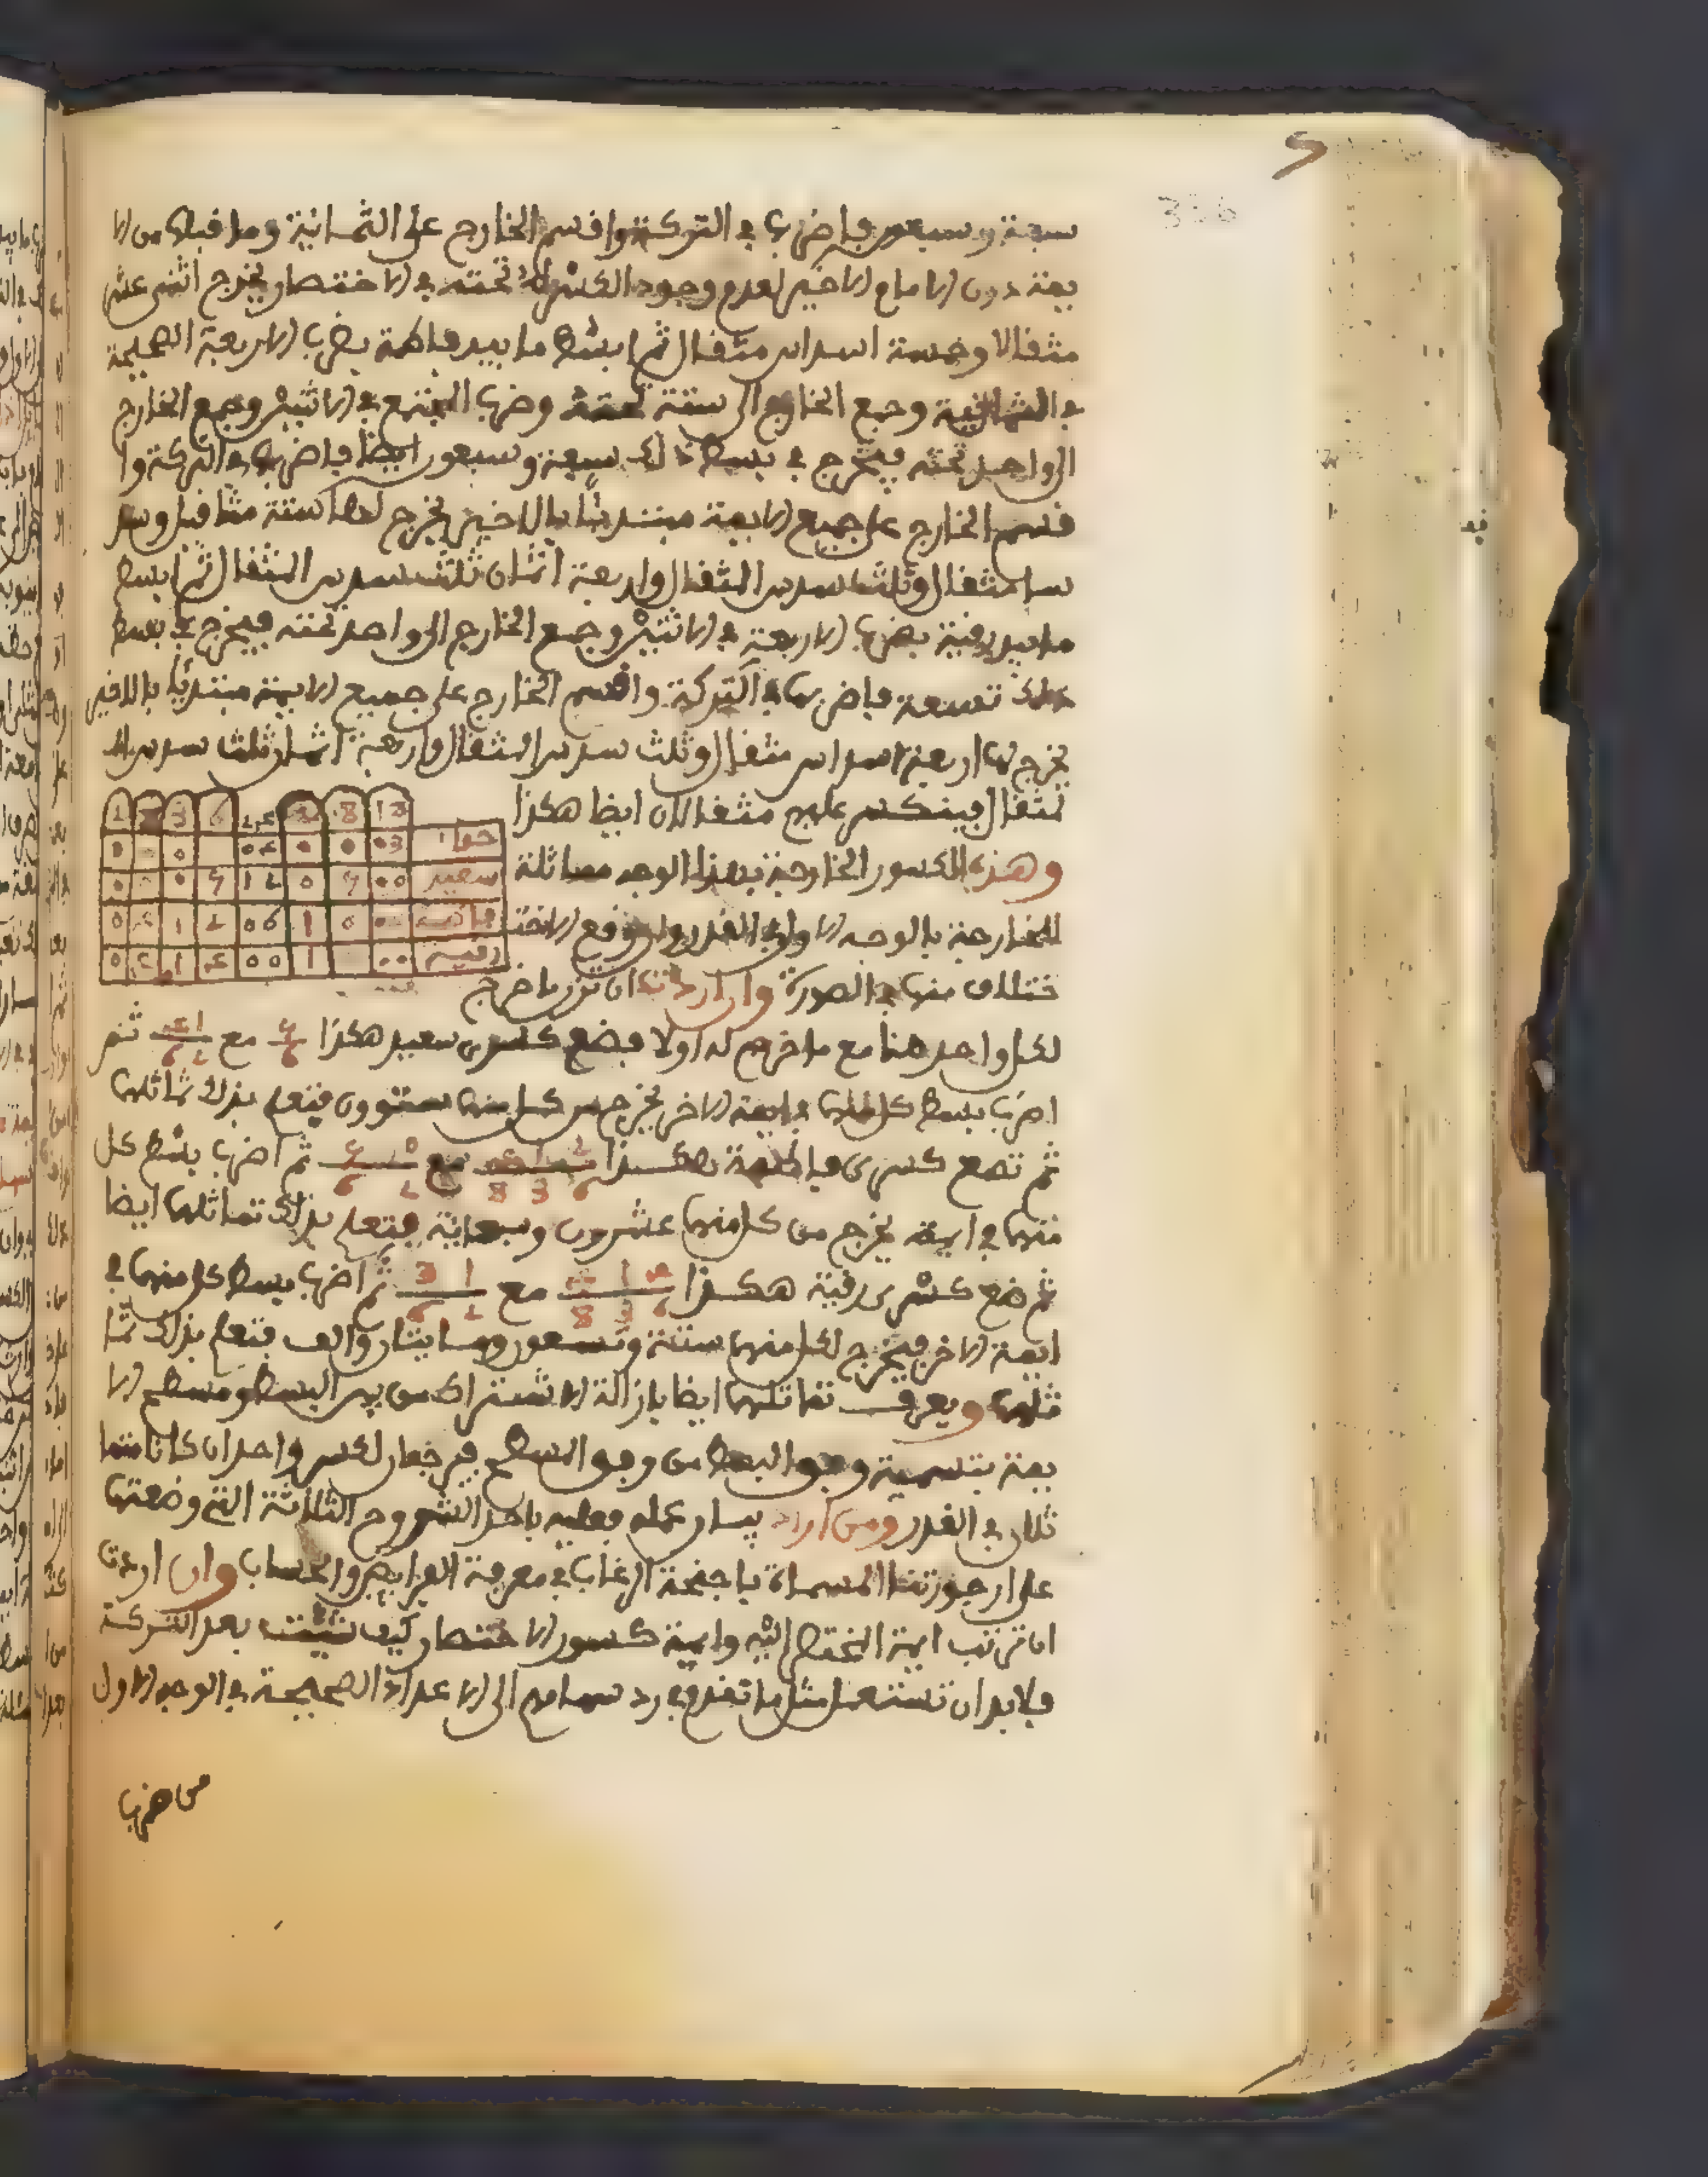 سبعة وسبعون فاضربها في التركة واقسم الخارج على الثمانية وما قبلها من الا
يمة دون الامام الاخير لعدم وجود الكسر تحته في الاختصار يخرج اثنى عشر
مثقالا وخمسة اسداس مثقال ثم ابسط ما بيد فاطمة بضرب الاربعة الصحيحة
في الثمانية وجمع الخارج الى ستة تحته وضرب المجتمع في الاثنين وجمع الخارج
الى واحد تحته فيخرج في بسط ذلك سبعة وسبعون ايضا فاضربها في التركة وا
قسم الخارج على جميع الايمة مبتدئا بالاخير يخرج لها ستة مثاقيل وسد
سا مثقال وثلثا سدس المثقال واربعة اثمان ثلث سدس المثقال ثم ابسط
ما بيد رقية بضرب الاربعة في الاثنين وجمع الخارج الى واحد تحته فيخرج في بسط
ذلك تسعة فاضربها في التركة واقسم الخارج على جميع الايمة مبتدئا بالاخير
يخرج لها اربعة اسداس مثقال وثلث سدس المثقال واربعة اثمان ثلث سدس الـ
مثقال فينكسر عليهم مثقالان ايضا هكذا
وهذه الكسور الخارجة بهذا الوجه مماثلة
للخارجة بالوجه الاول في القدر ولو وقع الاخت
ختلاف منها في الصورة وان اردت ان تزن ما خرج
لكل واحد هنا مع ما خرج له اولا فضع كسرى سعيد هكذا مع ثم
اضرب بسط كل منهما في ايمة الاخر يخرج من كل منهما ستون فتعلم بذلك تماثلهما
ثم تضع كسرى فاطمة هكذا مع ثم اضرب بسط كل
منهما في ايمة يخرج من كل منهما عشرون وسبعماية فتعلم بذلك تماثلهما ايضا
ثم ضع كسرى رقية هكذا مع ثم اضرب بسط كل منهما في
ايمة الاخر فيخرج لكل منهما ستة وتسعون ومايتان والف فتعلم بذلك تما
ثلهما ويعرف تماثلهما ايضا بازالة الاشتراك من بين البسط ومسطح الا
يمة بتسمية وفق البسط من وفق المسطح فيرجعان لكسر واحد ان كانا متما
ثلان في القدر ومن اراد بيان عمله فعليه باحد الشروح الثلاثة التي وضعتها
على ارجوزتنا المسماة باجنحة الرغاب في معرفة الفرايض والحساب وان اردت
ان ترتب ايمة المختصر اليه وايمة كسور الاختصار كيف شئت بعد التركة
فلا بد ان تستعمل مثل ما تقدم في رد سهامهم الى الاعداد الصحيحة في الوجه الاول
من ضرب